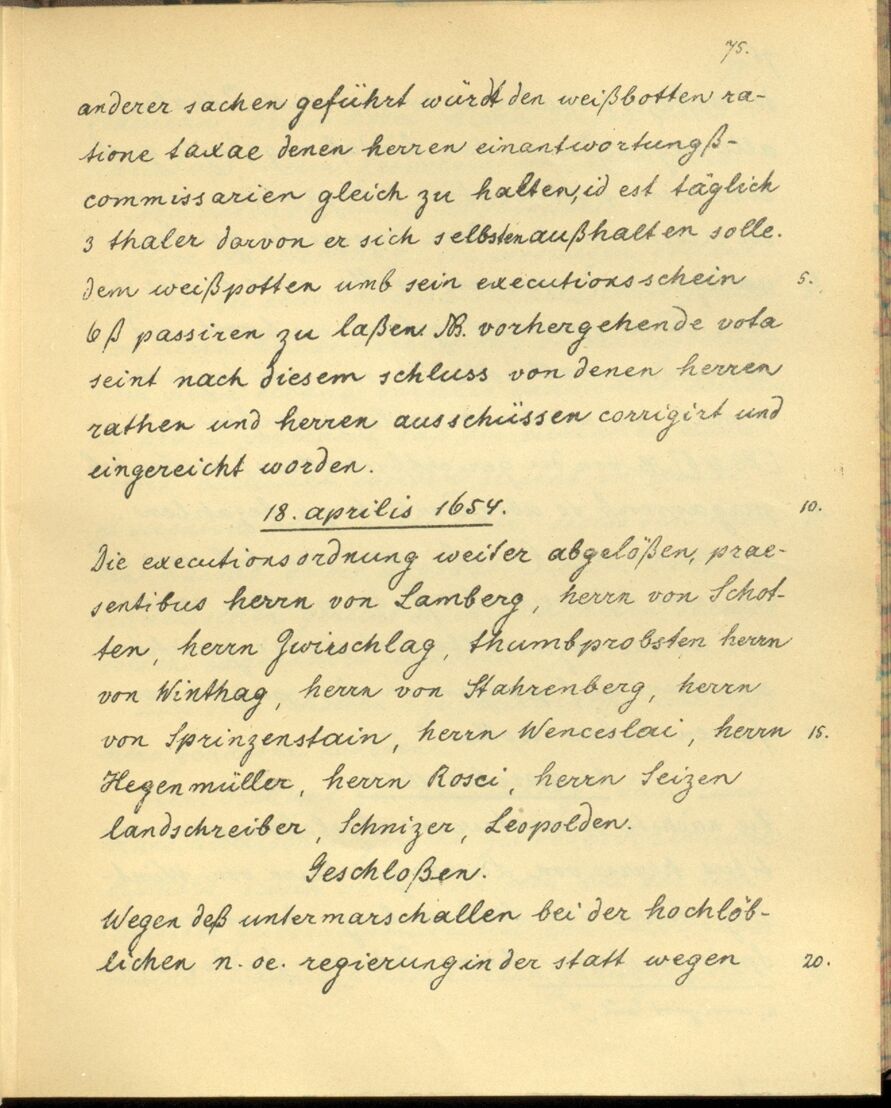 75.
anderer sachen geführt würdt den weißbotten ra-
tione taxae denen herren einantwortungß-
commissarien gleich zu halten, id est täglich
3 thaler darvon er sich selbsten außhalten solle.
dem weißpotten umb sein executionsschein 5.
6 ß passiren zu laßen. NB. vorhergehende vota
seint nach diesem schluss von denen herren
rathen und herren ausschüssen corrigirt und
eingereicht worden.
18. aprilis 1654. 10.
Die executionsordnung weiter abgelößen, prae-
sentibus herrn von Lamberg, herrn von Schot-
ten, herrn Gwirschlag, thumbprobsten herrn
von Winthag, herrn von Stahrenberg, herrn
von Sprinzenstain, herrn Wenceslai, herrn 15.
Hegenmüller, herrn Rosci, herrn Seizen
landschreiber, Schnizer, Leopolden.
Geschloßen.
Wegen deß untermarschallen bei der hochlöb-
lichen n. oe. regierung in der statt wegen 20.